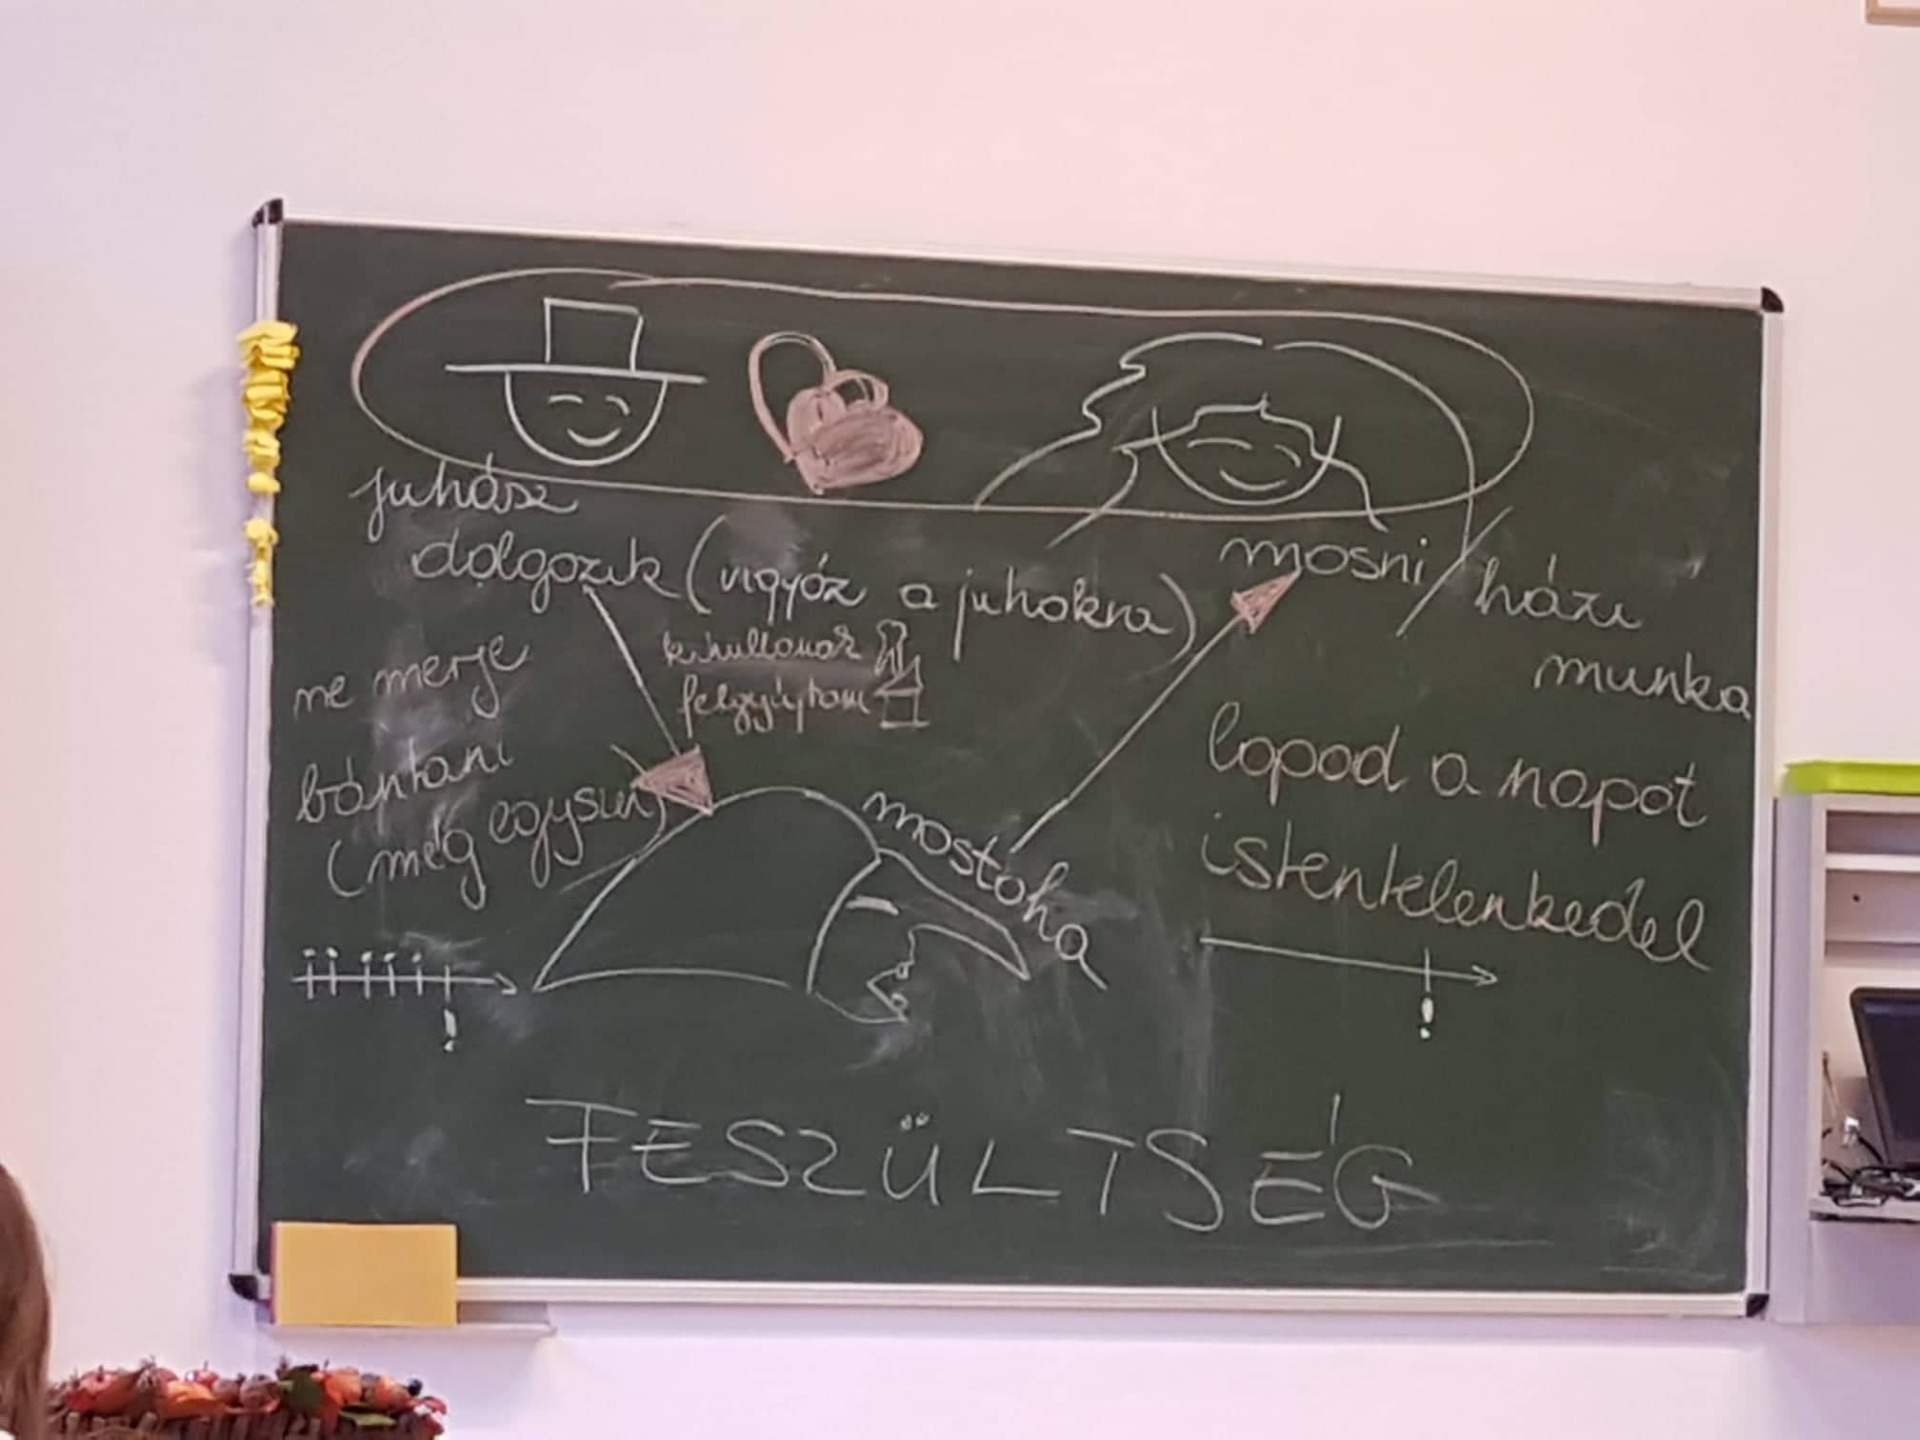 juhász
dolgozik (vigyáz a juhokra)
mosni / házi
munka
felgyújtom
ne merje
bántani
(még egyszer)
mostoha
lopod a napot
istentelenkedel
!
!
FESZÜLTSÉG